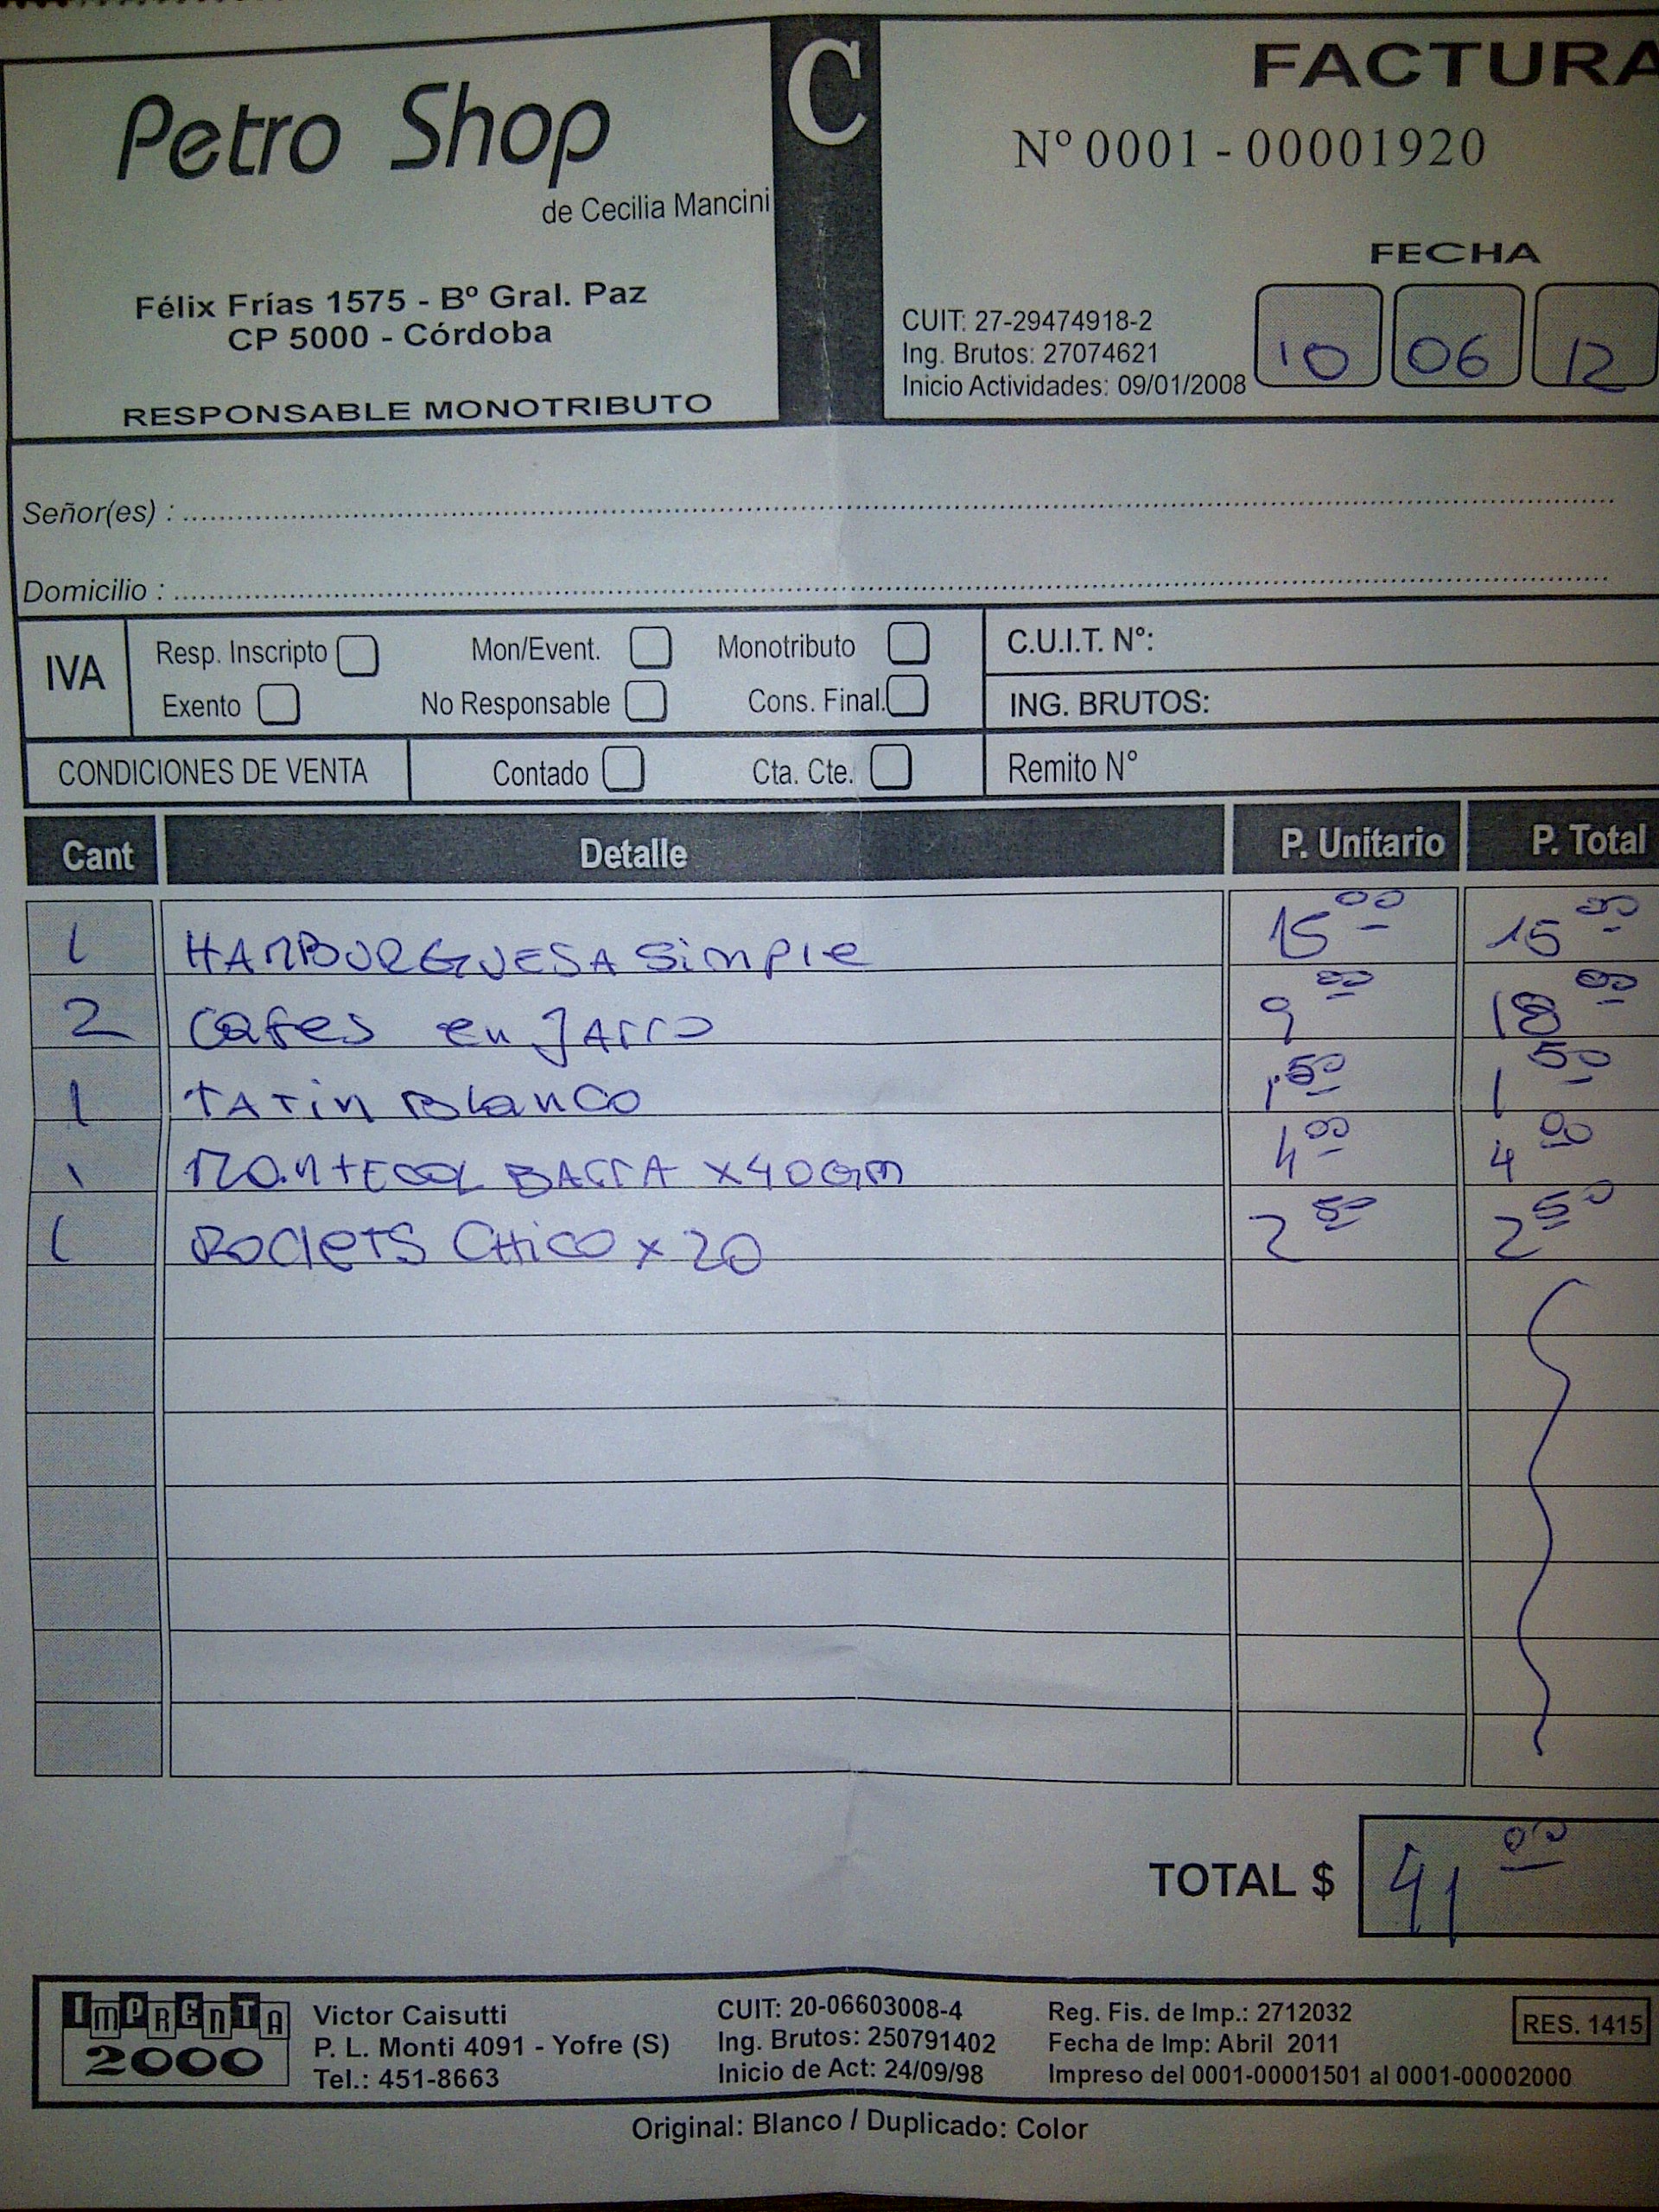 Petro Shop
de Cecilia Mancini
Félix Frías 1575 - Bº Gral. Paz
CP 5000 - Córdoba
RESPONSABLE MONOTRIBUTO
C
FACTURA
Nº 0001 - 00001920
FECHA
10 06 12
CUIT: 27-29474918-2
Ing. Brutos: 27074621
Inicio Actividades: 09/01/2008
Señor(es) :
Domicilio :
IVA
Resp. Inscripto Mon/Event. Monotributo
Exento No Responsable Cons. Final.
C.U.I.T. Nº:
ING. BRUTOS:
CONDICIONES DE VENTA Contado Cta. Cte. Remito Nº
Cant Detalle P. Unitario P. Total
1 HAMBURGUESA Simple 15 00 15 00
2 Cafes en JArro 9 00 18 00
1 TATin Blanco 1.50 1 50
1 MANTECOL BArrA x40Gm 4 00 4 00
1 ROClets CHico x 20 2 50 2 50
TOTAL $ 41 00
IMPRENTA 2000
Victor Caisutti
P. L. Monti 4091 - Yofre (S)
Tel.: 451-8663
CUIT: 20-06603008-4
Ing. Brutos: 250791402
Inicio de Act: 24/09/98
Reg. Fis. de Imp.: 2712032
Fecha de Imp: Abril 2011
Impreso del 0001-00001501 al 0001-00002000
RES. 1415
Original: Blanco / Duplicado: Color